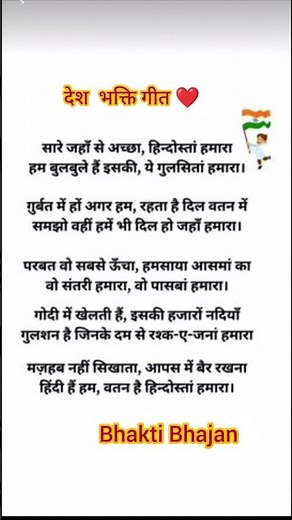 देश भक्ति गीत ❤️
सारे जहाँ से अच्छा, हिन्दोस्तां हमारा
हम बुलबुले हैं इसकी, ये गुलसितां हमारा।
ग़ुर्बत में हों अगर हम, रहता है दिल वतन में
समझो वहीं हमें भी दिल हो जहाँ हमारा।
परबत वो सबसे ऊँचा, हमसाया आसमां का
वो संतरी हमारा, वो पासबां हमारा।
गोदी में खेलती हैं, इसकी हजारों नदियाँ
गुलशन है जिनके दम से रश्क-ए-जनां हमारा
मज़हब नहीं सिखाता, आपस में बैर रखना
हिंदी हैं हम, वतन है हिन्दोस्तां हमारा।
Bhakti Bhajan